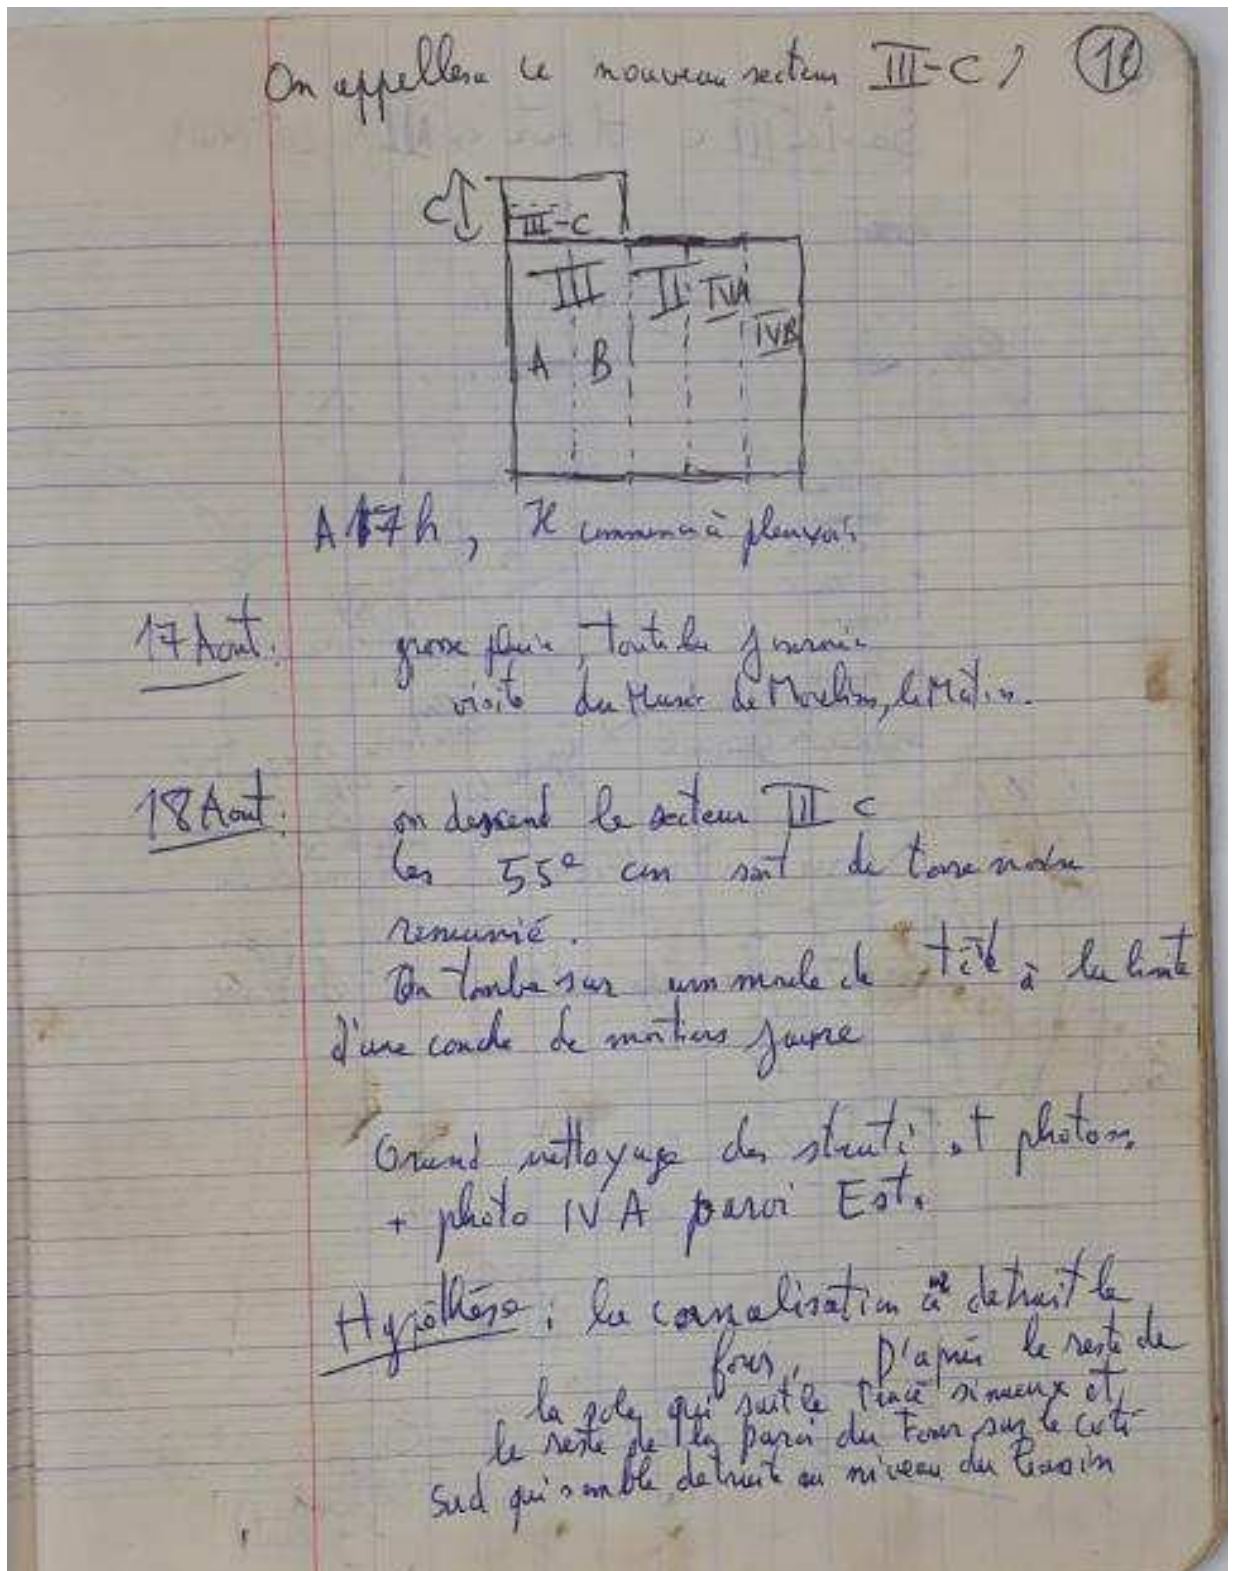 On appellera le nouveau secteur III-C / 10
C
III-C
III II IVA
IVB
A B
A 17h, Il commence à pleuvoir
17 Aout: grosse pluie, toute la journée
visite du Musée de Moulins, le Matin.
18 Aout: on descend le secteur III C
les 55e cm sont de terre noire
remanié.
On tombe sur un moule de tête à la limite
d'une couche de mortiers jaune
Grand nettoyage des strati et photos.
+ photo IV A paroi Est.
Hypothèse: la cannalisation a detruit le
four, D'après le reste de
la sole qui suit le tracé sinueux et
le reste de la paroi du Four sur le coté
Sud qui semble detruite au niveau du bassin